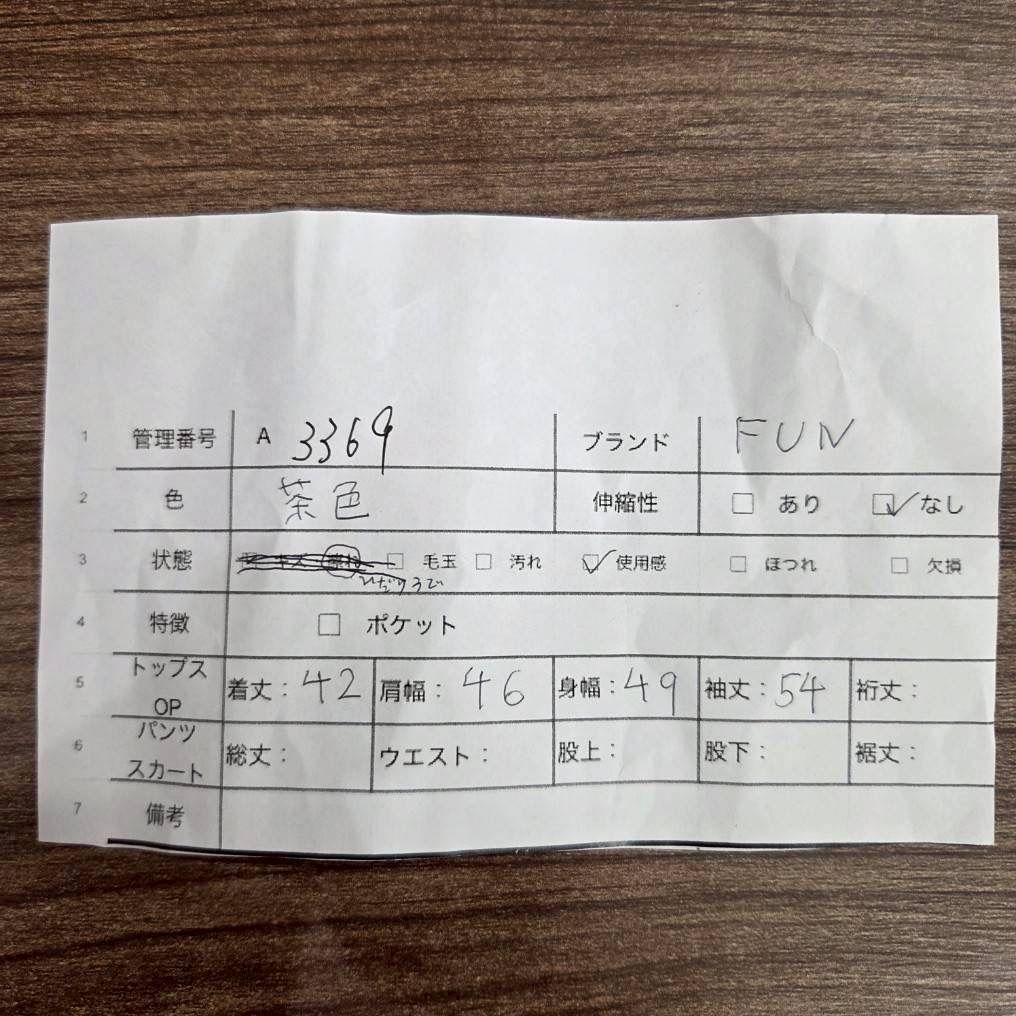 1 管理番号 A 3369 ブランド FUN
2 色 茶色 伸縮性 □ あり ☑ なし
3 状態 □ 毛玉 □ 汚れ ☑ 使用感 □ ほつれ □ 欠損
ひだりうで
4 特徴 □ ポケット
5 トップス OP 着丈：42 肩幅：46 身幅：49 袖丈：54 裄丈：
6 パンツ スカート 総丈： ウエスト： 股上： 股下： 裾丈：
7 備考